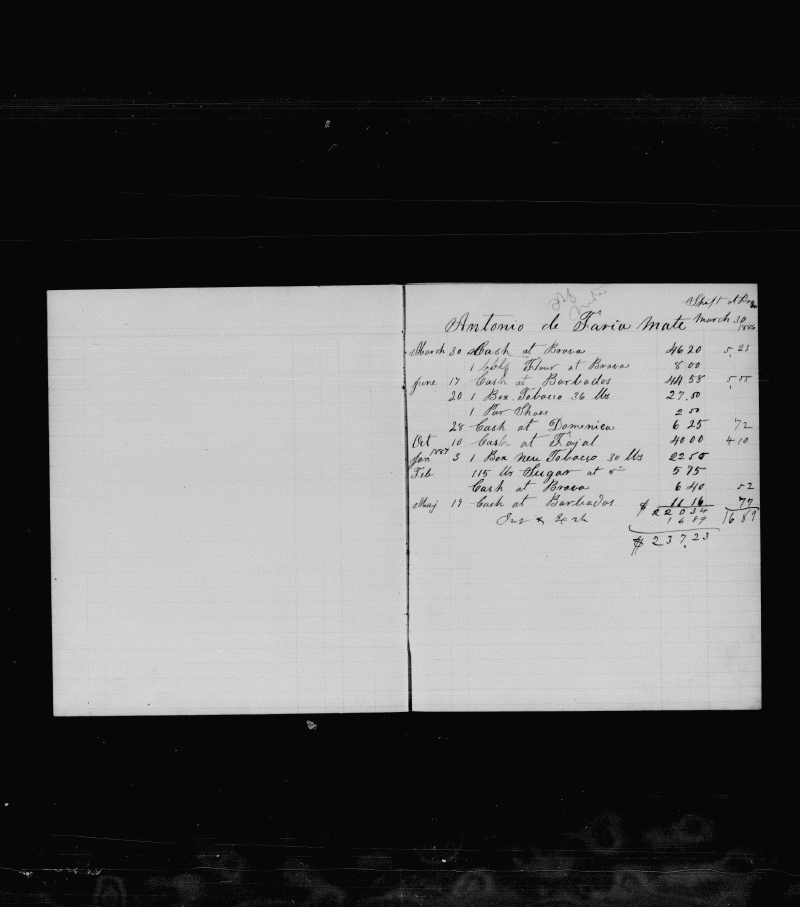 Shipt at
Antonio de Faria Mate March 30
1886
March 30 Cash at Brava 46 20 5.23
1 bbl Flour at Brava 8 00
June 17 Cash at Barbados 44 58 5.55
20 1 Box Tobacco 36 lbs 27.50
1 Par Shoes 2 50
28 Cash at Domenica 6 25 72
Oct 10 Cash at Fayal 40 00 4 10
1887
Jan 3 1 Box New Tobacco 30 lbs 22 50
Feb 115 lbs Sugar at 5 5 75
Cash at Brava 6 40 52
May 19 Cash at Barbados 11 16 77
$ 220 34 16 89
Ins & Exch 16 89
$ 237.23